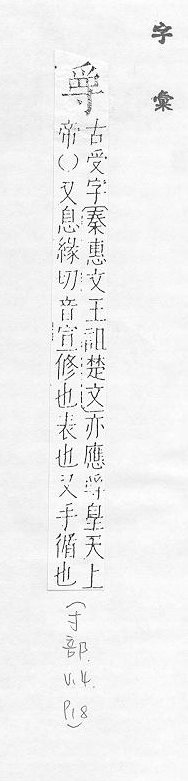 字彙
古受字(秦惠文王詛楚文)亦應皇天上
帝()又息緣切音宣修也表也又手循也
(寸部.
V.4.
P18)